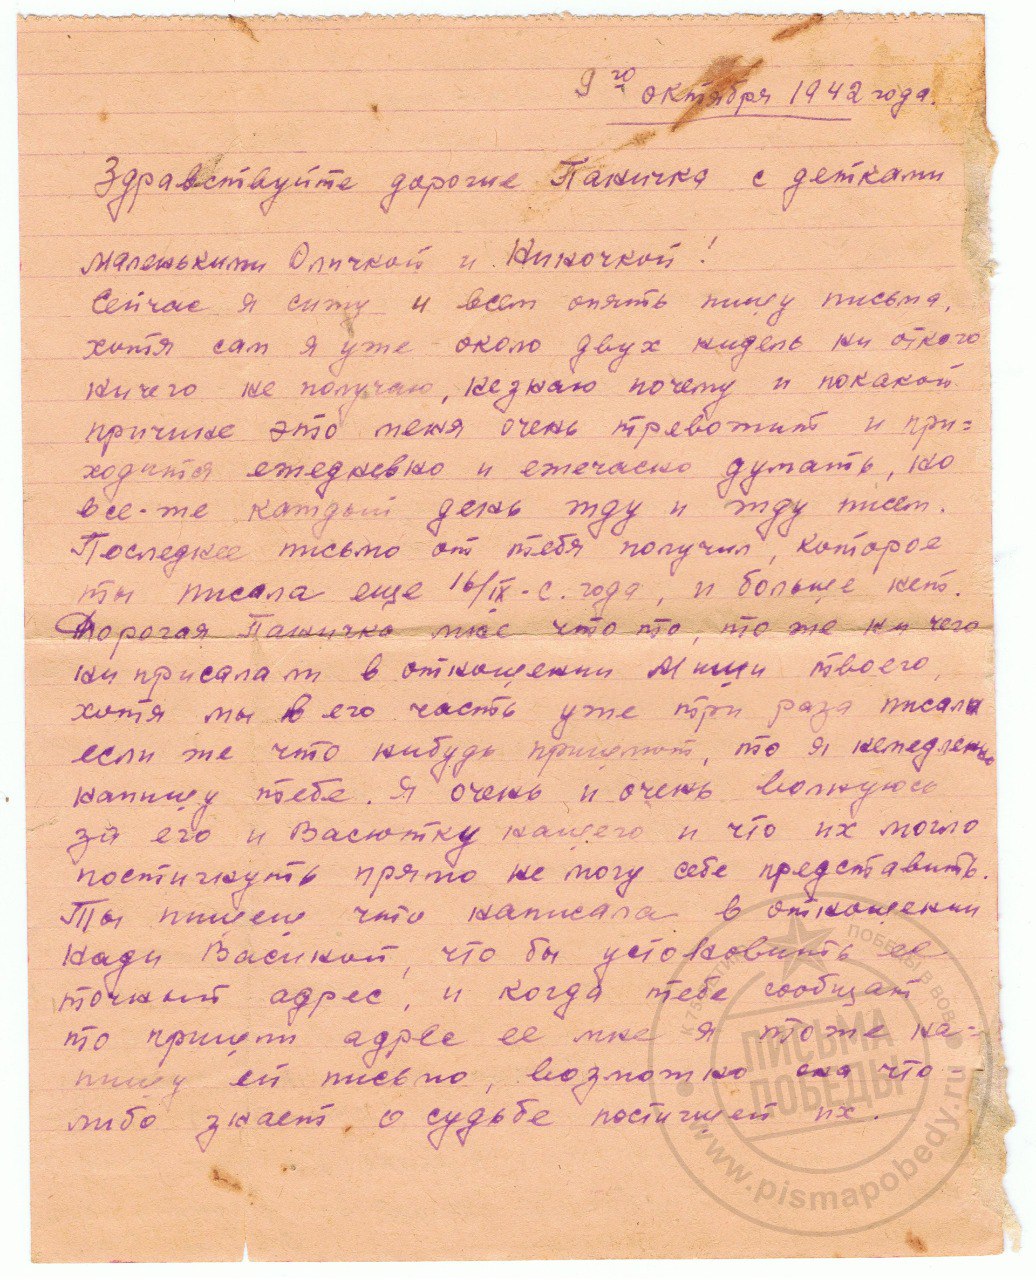 9го октября 1942 года.
Здравствуйте дорогие Паничка с детками
маленькими Оличкой и Ниночкой!
Сейчас я сижу и всем опять пишу письма,
хотя сам я уже около двух нидель ни откого
ничего не получаю, незнаю почему и покакой
причине это меня очень тревожит и при=
ходится ежедневно и ежечасно думать, но
все-же каждый день жду и жду писем.
Последнее письмо от тебя получил, которое
ты писала еще 16/IX-с. года, и больше нет.
Дорогая Паничка мне что то, то же ни чего
ни присалали в отношении Миши твоего,
хотя мы в его часть уже три раза писали
если же что нибудь пришлют, то я немедленно
напишу тебе. Я очень и очень волнуюсь
за его и Васютку нашего и что их могло
постигнуть прямо не могу себе представить.
Ты пишеш что написала в отношении
Нади Васиной, что бы устоновить ее
точный адрес, и когда тебе сообщат
то пришли адрес ее мне я тоже на-
пишу ей письмо, возможно она что
либо знает о судьбе постигшей их.
К 75-ЛЕТИЮ ПОБЕДЫ В ВОВ
ПИСЬМА
ПОБЕДЫ
www.pismapobedy.ru